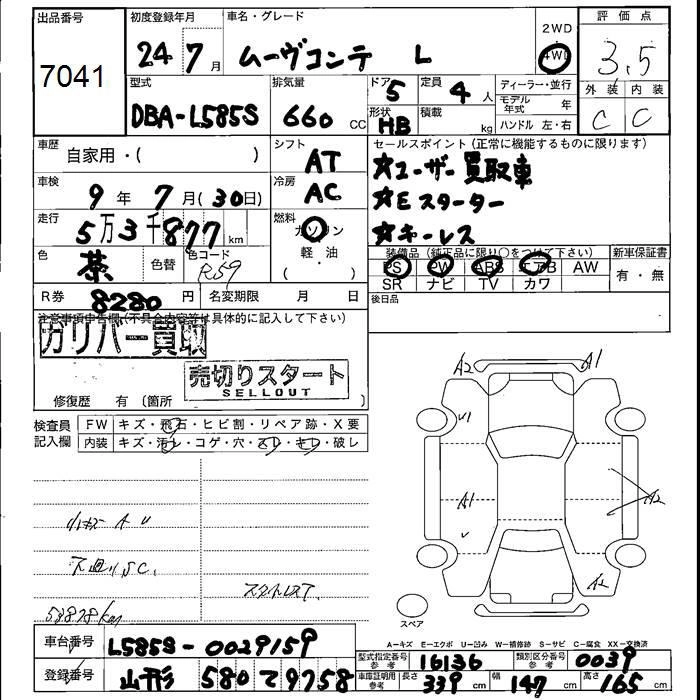 出品番号
7041
初度登録年月
24 7 月
車名・グレード
ムーヴコンテ L
2WD
4WD
評価点
3.5
外装 内装
C C
型式
DBA-L585S
排気量
660 CC
ドア 5
形状 HB
定員 4 人
積載 kg
ディーラー・並行
モデル年式 年
ハンドル 左・右
車歴
自家用・( )
シフト
AT
セールスポイント(正常に機能するものに限ります)
☆ユーザー買取車
☆Eスターター
☆キーレス
車検
9 年 7 月(30日)
冷房
AC
走行
5万3千877 km
燃料
ガソリン
軽・油
( )
色
茶
色替
色コード
R59
装備品(純正品に限り○をつけて下さい)
PS PW ABS エアB AW
SR ナビ TV カワ
新車保証書
有・無
R券 8280 円
名変期限 月 日
後日品
注意事項申告欄(不具合内容等は具体的に記入して下さい)
ガリバー買取
売切りスタート
SELLOUT
修復歴 有 (箇所 )
検査員記入欄
FW キズ・飛石・ヒビ割・リペア跡・X要
内装 キズ・汚レ・コゲ・穴・スレ・キレ・破レ
A2 A1
A1
A2
A2
小キズ A U
下廻りSC.
53878km
スペア
A-キズ E-エクボ U-凹み W-補修跡 S-サビ C-腐食 XX-交換済
車台番号 L585S-0029159
登録番号 山形 580 て 9758
型式指定番号 参考 16136
類別区分番号 参考 0039
車庫証明用 参考 長さ 339 cm 幅 147 cm 高さ 165 cm